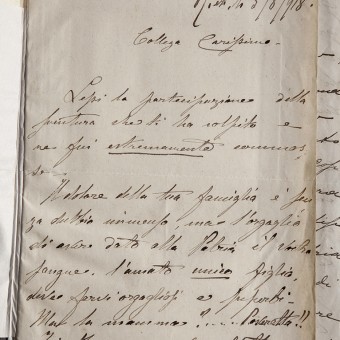 Collega Carissimo-
Lessi la partecipazione della
sventura che ti ha colpito e
ne fui estremamente commos
so-
Il dolore della tua famiglia è sen
za dubbio immenso, ma l'orgoglio
di aver dato alla Patria il vostro
sangue, l'amato unico figlio,
deve farvi orgogliosi e superbi-
Ma la mamma? .... Poveretta!!